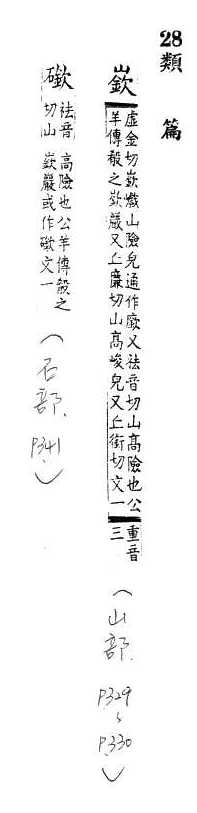 28類篇
嶔
虛金切嶔巇山險皃通作廞又祛音切山高險也公
羊傳殽之嶔巖又丘廉切山高峻皃又丘銜切文一
重音三
(山部. P329~P.330)
礉
祛音切山高險也公羊傳殽之
嶔巖或作礉文一
(石部. P341.)